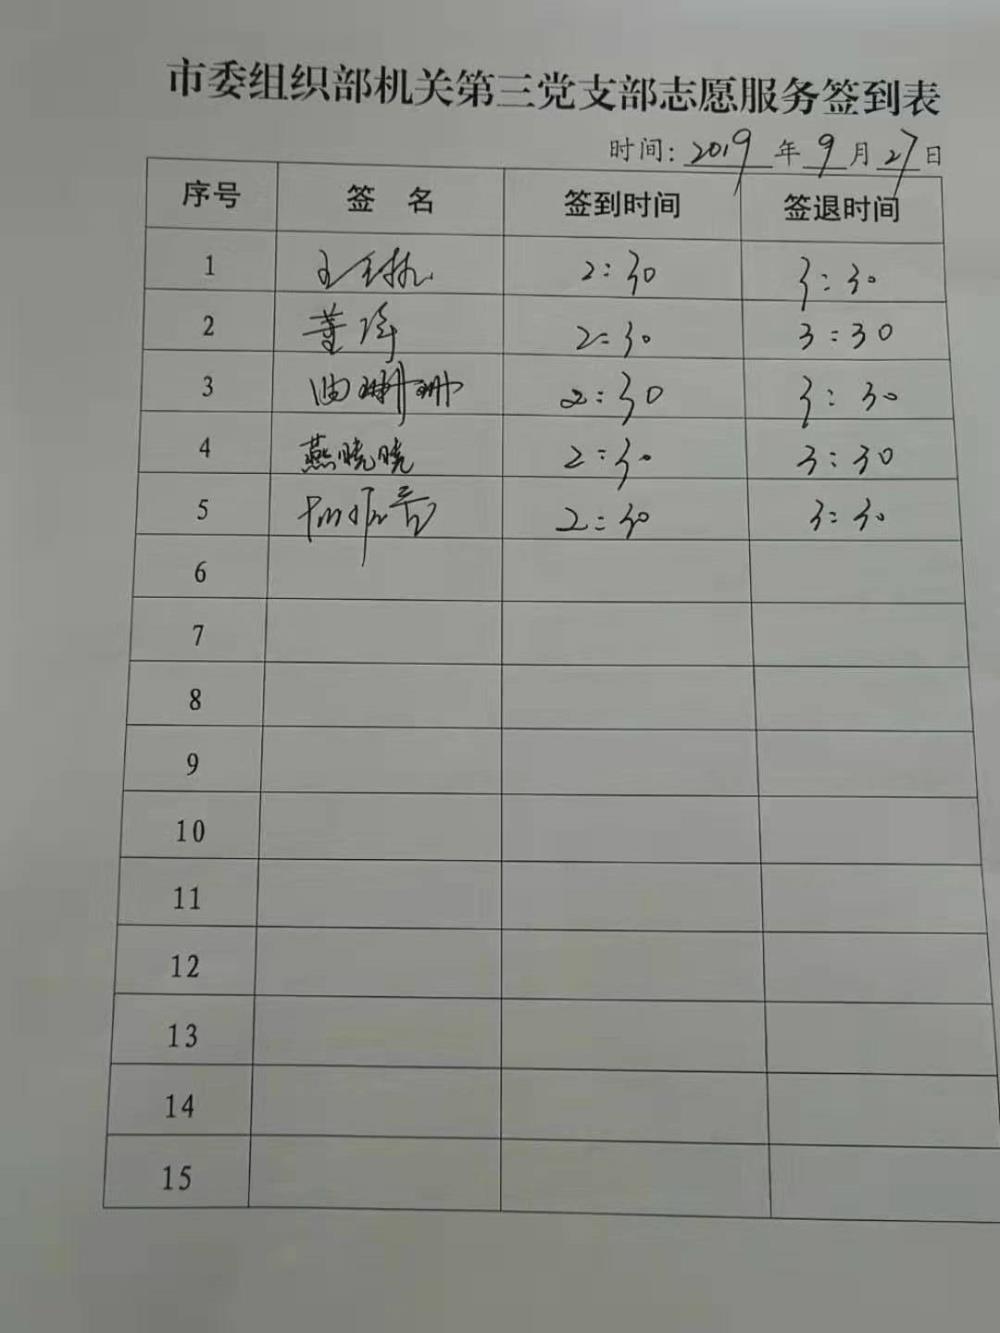 市委组织部机关第三党支部志愿服务签到表
时间: 2019 年 9 月 27 日
序号 签 名 签到时间 签退时间
1 2:30 3:30
2 董 2:30 3:30
3 2:30 3:30
4 燕晓晓 2:30 3:30
5 2:30 3:30
6
7
8
9
10
11
12
13
14
15